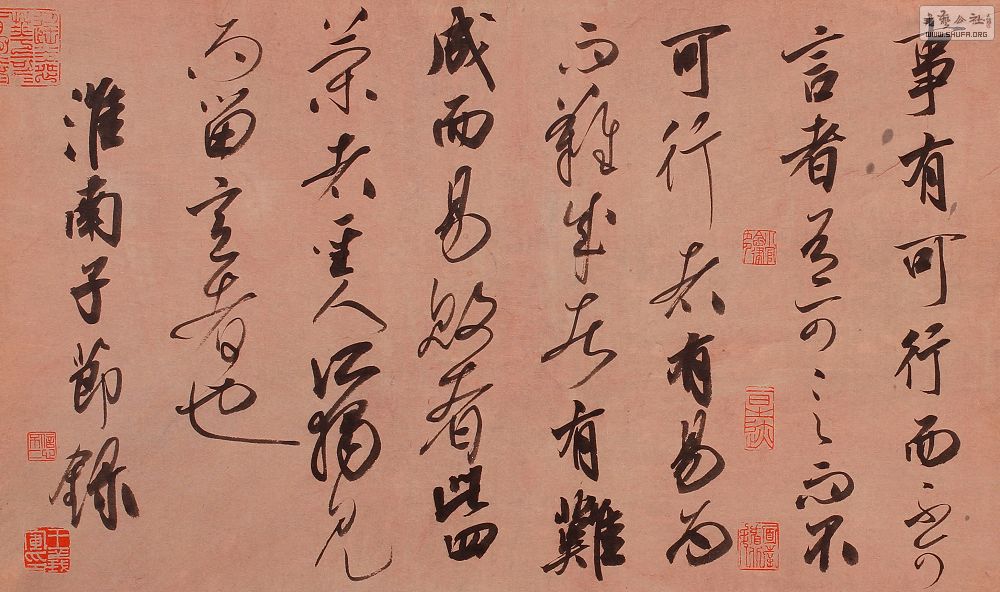 事有可行而不可
言者有可言而不
可行者有易为
而難成者有難
成而易敗者此四
策者聖人所獨見
而留意者也
淮南子節錄
書藝公社
WWW.SHUFA.ORG